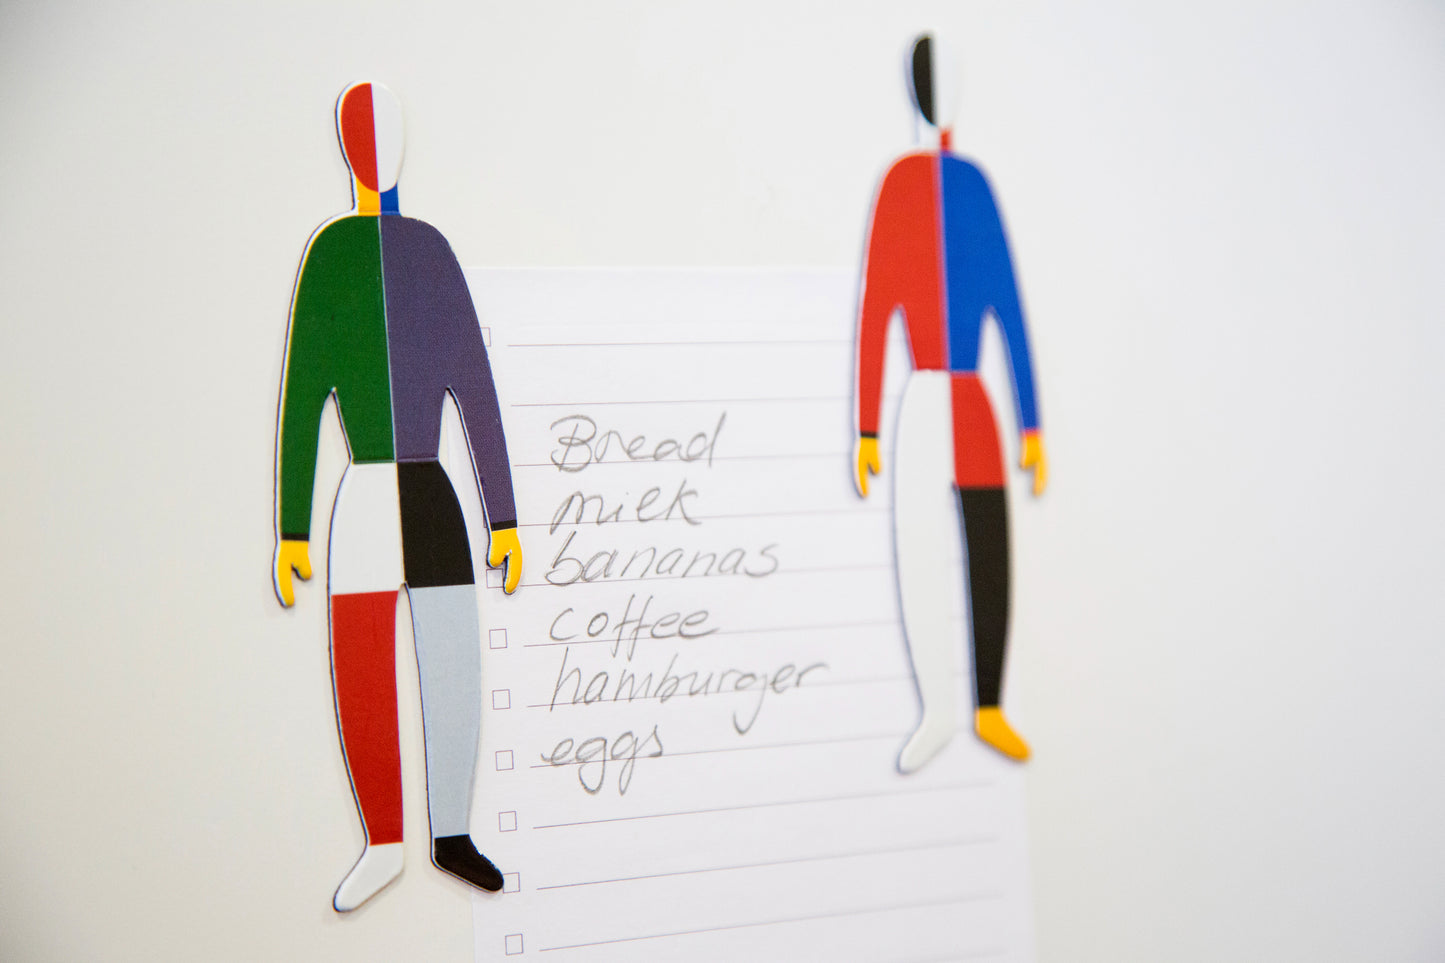 Bread
milk
bananas
coffee
hamburger
eggs